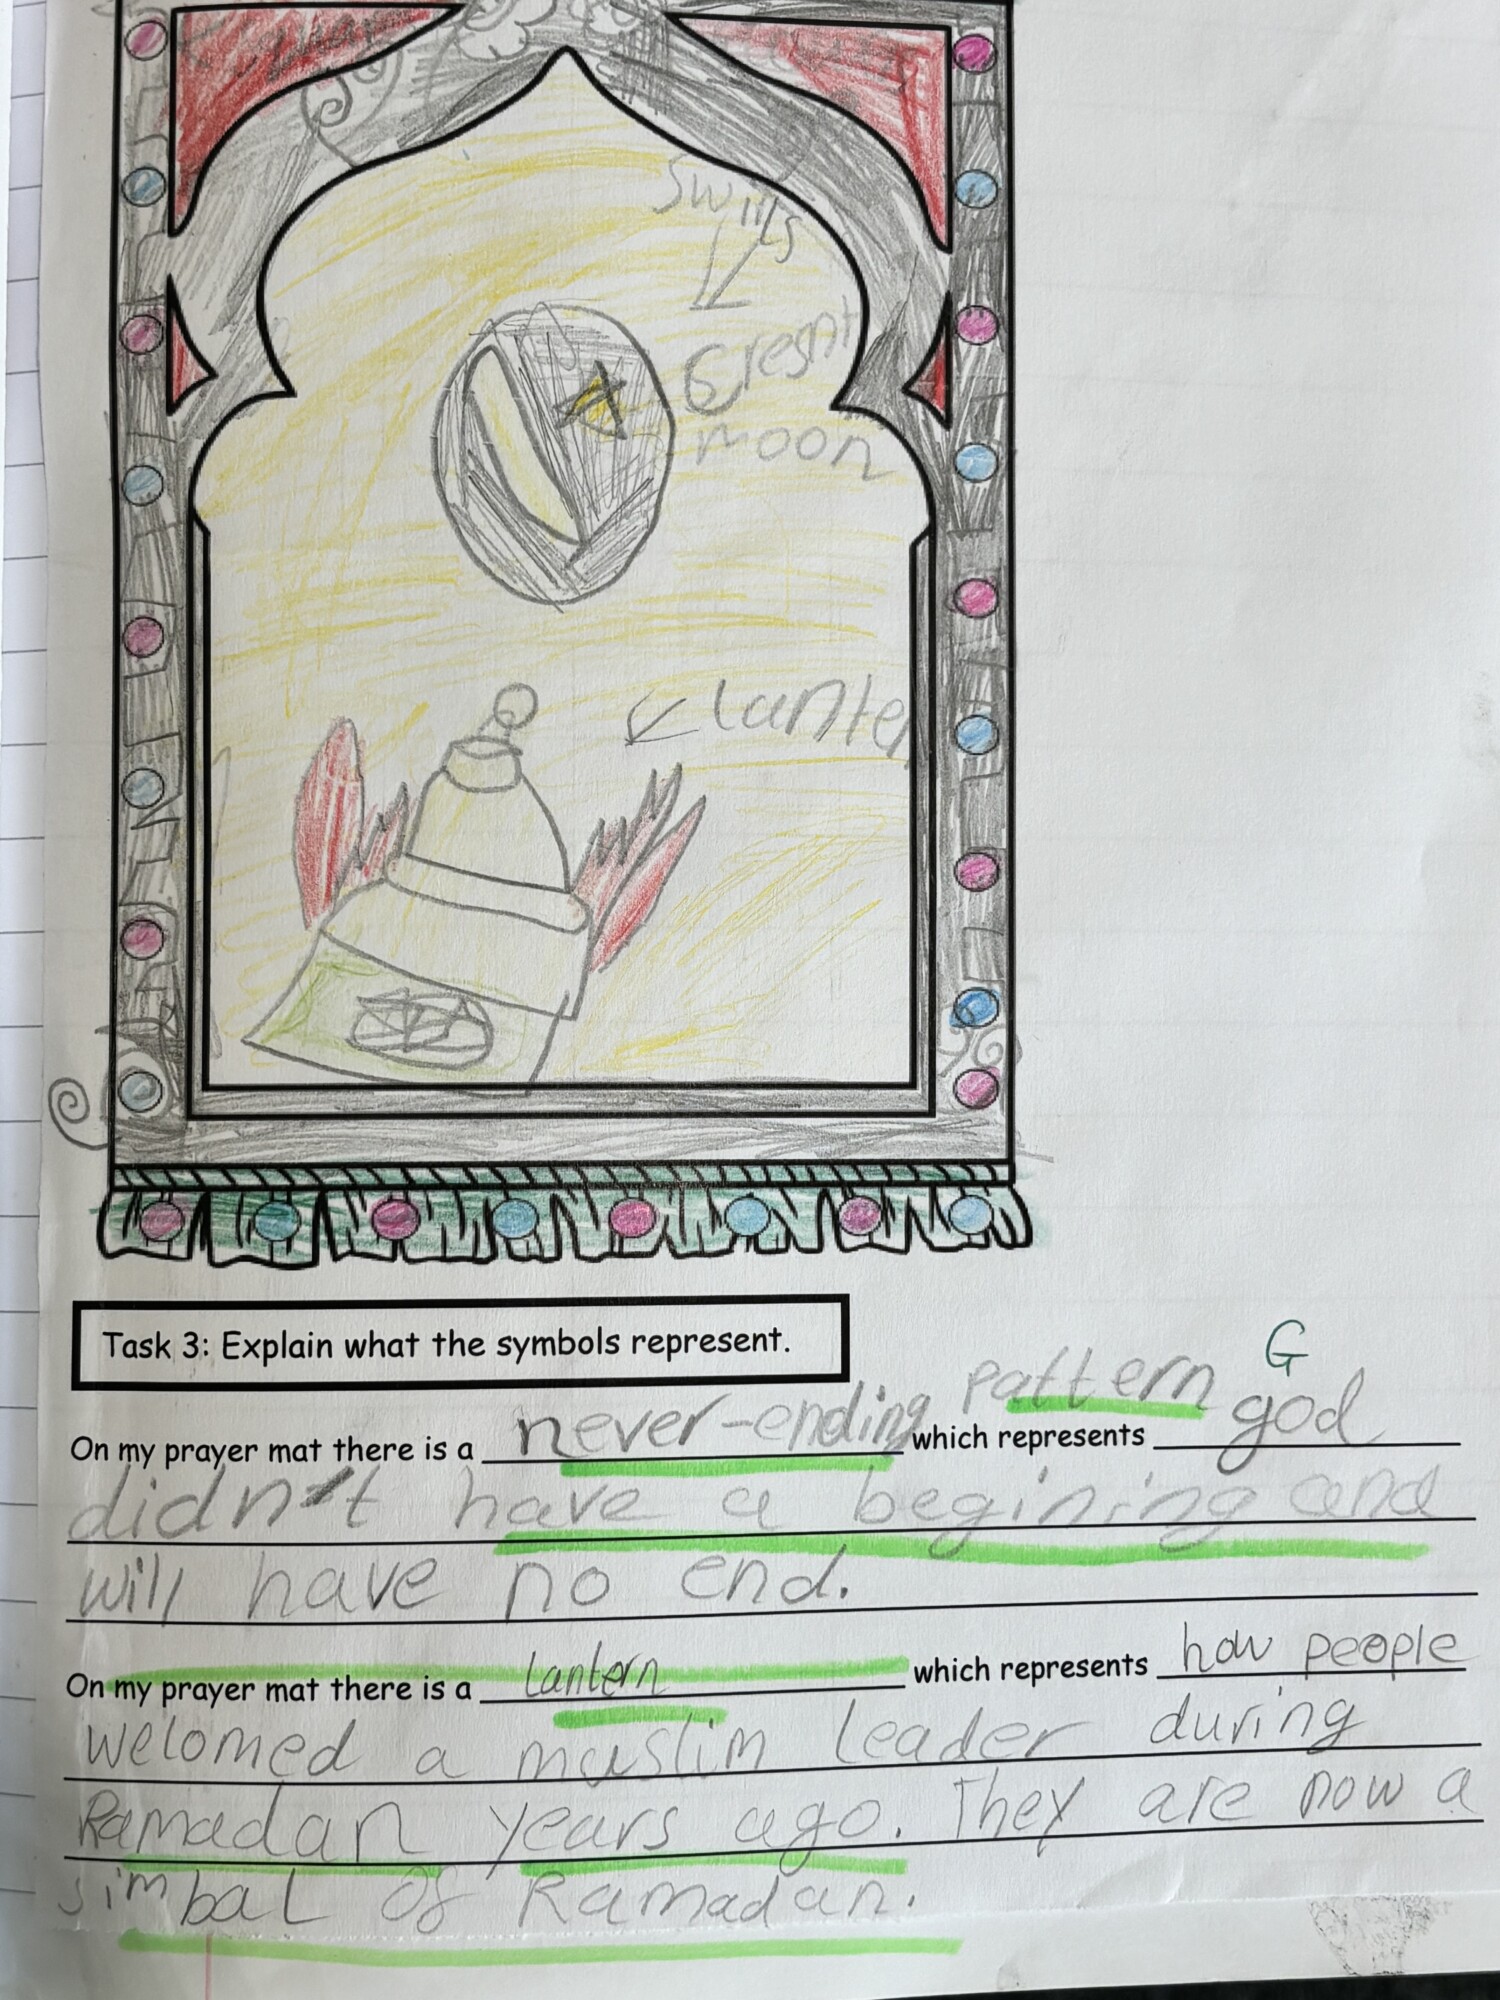 Swirls
Cresnt
moon
Lante
Task 3: Explain what the symbols represent.
G
On my prayer mat there is a never-ending pattern which represents god
didn't have a begining and
will have no end.
On my prayer mat there is a lantern which represents how people
welomed a muslim leader during
Ramadan years ago. They are now a
simbal of Ramadan.